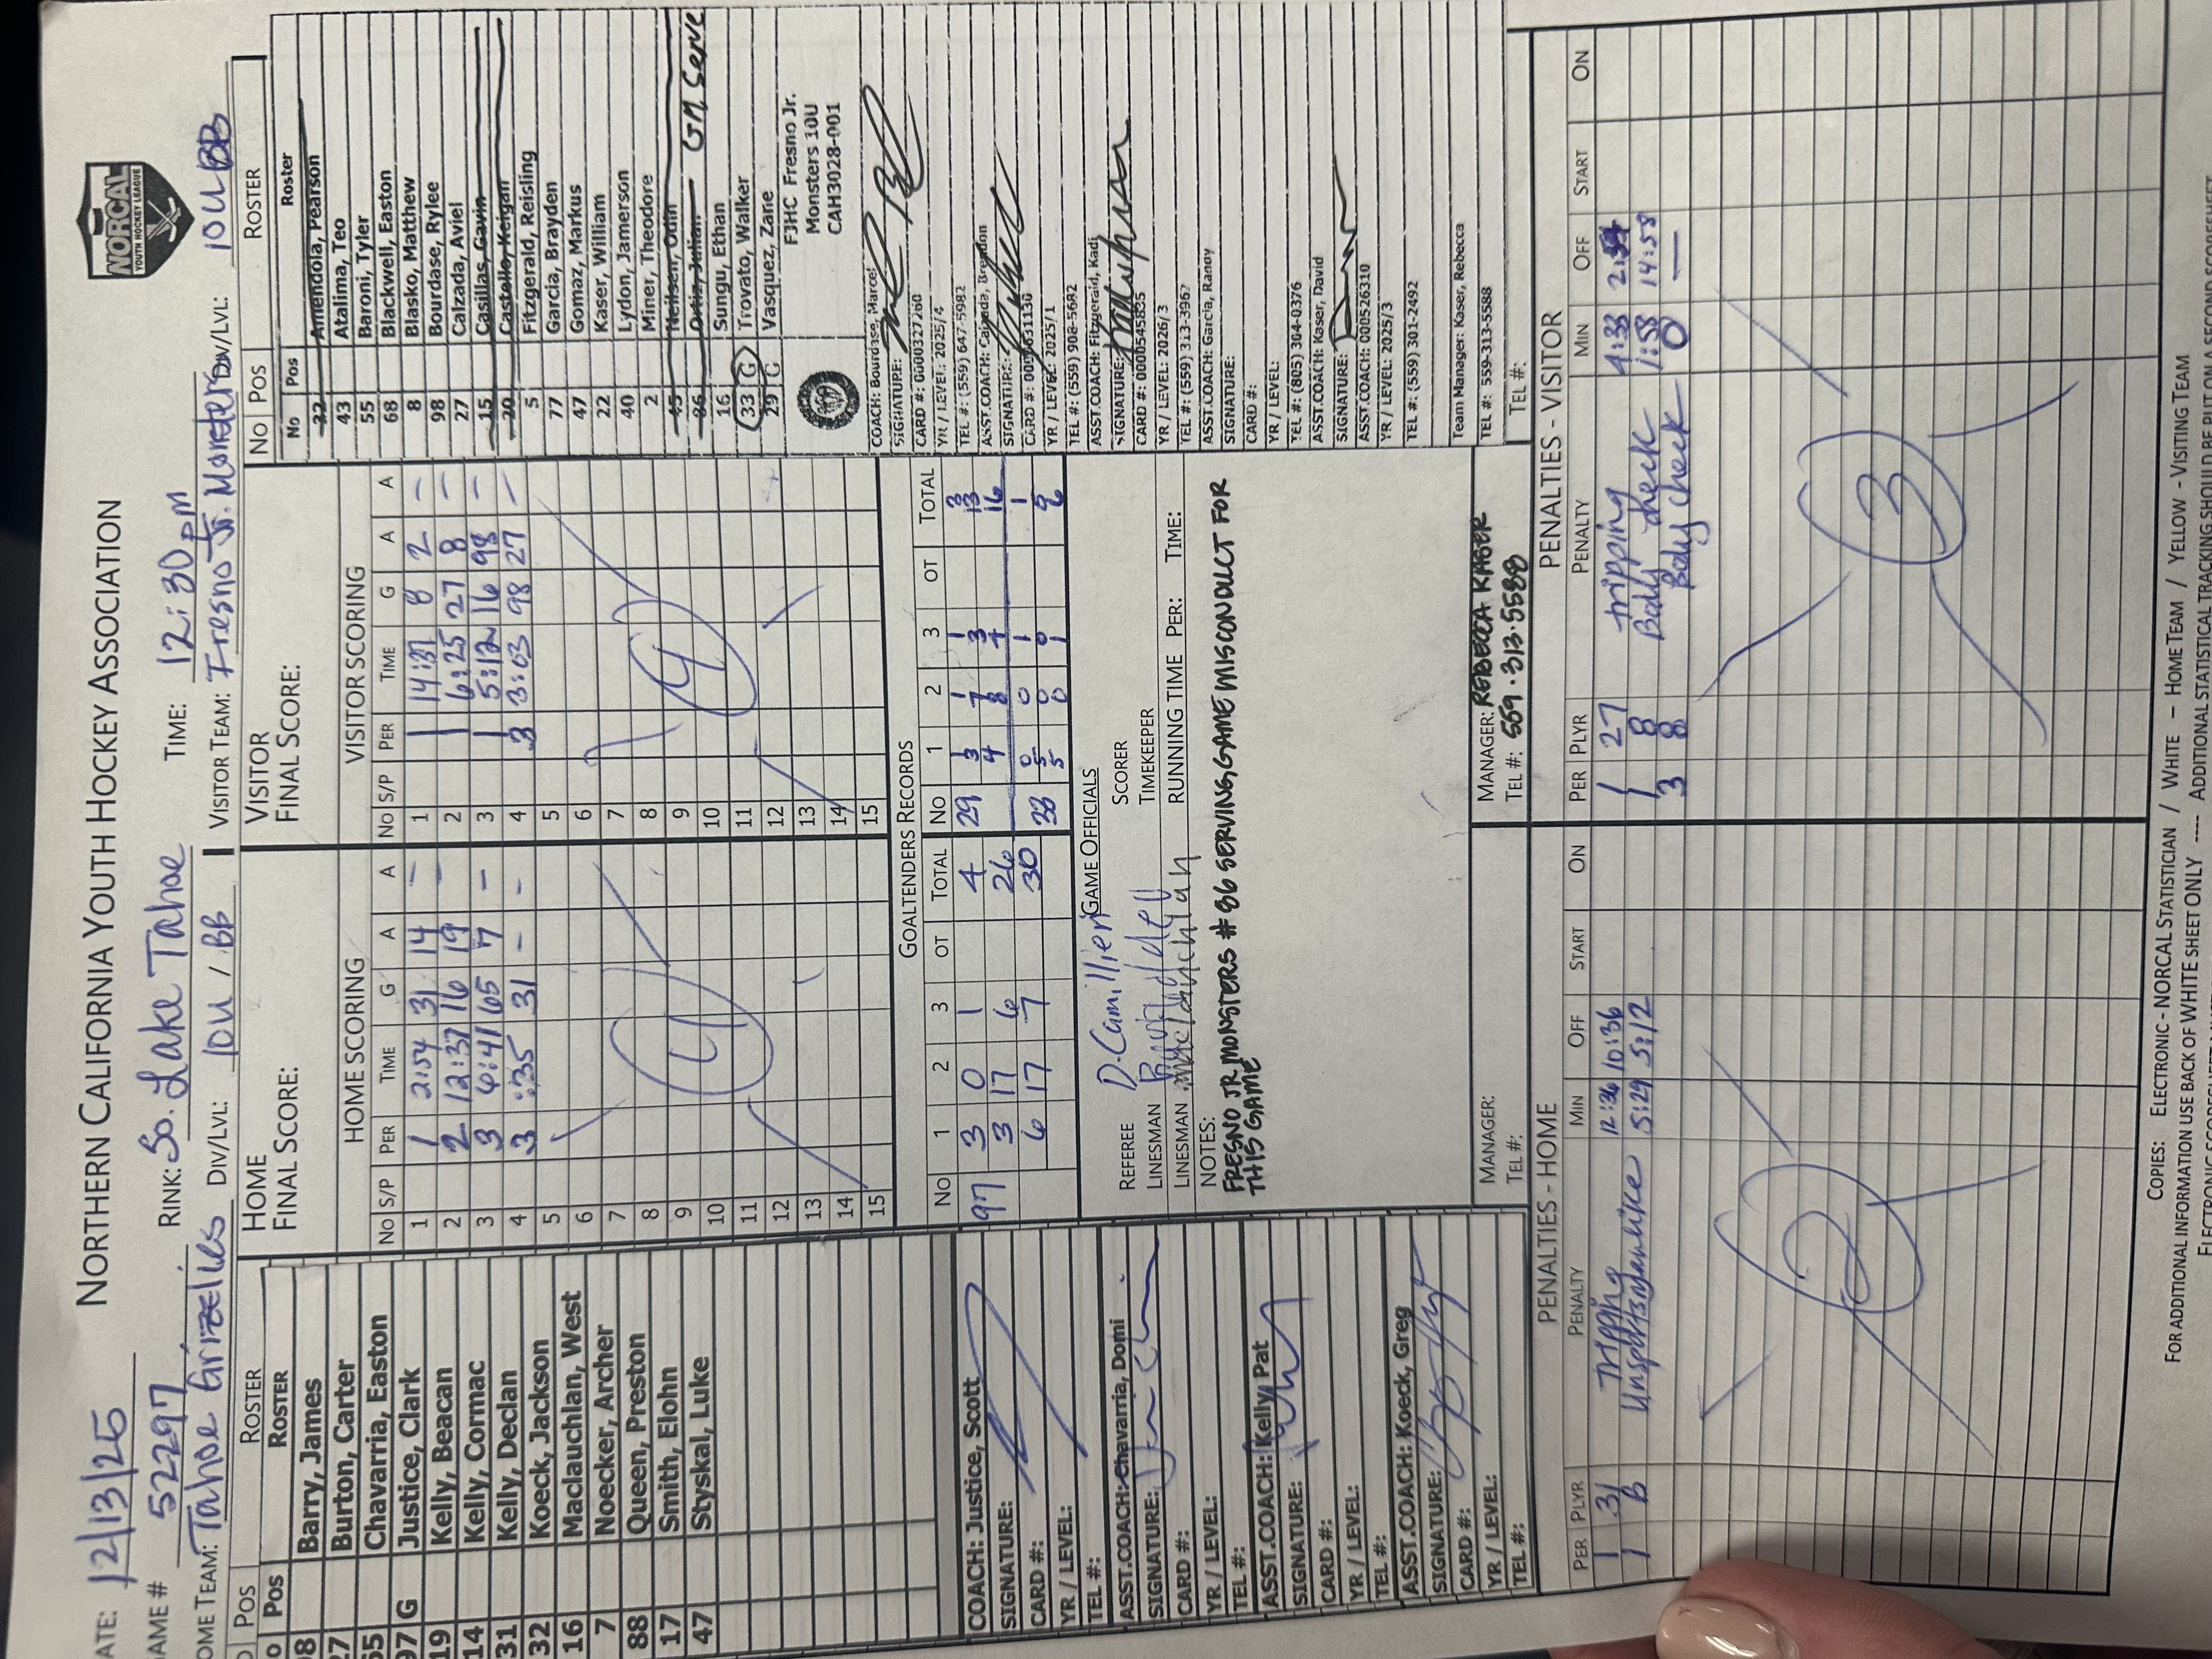 NORTHERN CALIFORNIA YOUTH HOCKEY ASSOCIATION
NORCAL
YOUTH HOCKEY LEAGUE
ATE: 12/13/25
RINK: So. Lake Tahoe
TIME: 12:30pm
AME # 52297
OME TEAM: Tahoe Grizzlies
DIV/LVL: 10U / BB
VISITOR TEAM: Fresno Jr. Monsters
DIV/LVL: 10U BB
POS ROSTER
O POS ROSTER
08 Barry, James
27 Burton, Carter
65 Chavarria, Easton
97 G Justice, Clark
19 Kelly, Beacan
14 Kelly, Cormac
31 Kelly, Declan
32 Koeck, Jackson
16 Maclauchlan, West
7 Noecker, Archer
88 Queen, Preston
17 Smith, Elohn
47 Styskal, Luke
COACH: Justice, Scott
SIGNATURE:
CARD #:
YR / LEVEL:
TEL #:
ASST.COACH: Chavarria, Domi
SIGNATURE:
CARD #:
YR / LEVEL:
TEL #:
ASST.COACH: Kelly Pat
SIGNATURE:
CARD #:
YR / LEVEL:
TEL #:
ASST.COACH: Koeck, Greg
SIGNATURE:
CARD #:
YR / LEVEL:
TEL #:
HOME
FINAL SCORE:
HOME SCORING
NO S/P PER TIME G A A
1 1 2:54 31 14 –
2 2 12:37 16 19 –
3 3 6:41 65 7 –
4 3 :35 31 – –
5
6
7
8
9
10
11
12
13
14
15
4
VISITOR
FINAL SCORE:
VISITOR SCORING
NO S/P PER TIME G A A
1 1 14:31 8 2 –
2 1 6:25 27 8 –
3 1 5:12 16 98 –
4 3 3:03 98 27 –
5
6
7
8
9
10
11
12
13
14
15
4
GOALTENDERS RECORDS
NO 1 2 3 OT TOTAL
97 3 0 1 4
3 17 6 26
6 17 7 30
NO 1 2 3 OT TOTAL
29 1 1 1 3
3 7 3 13
4 8 4 16
33 0 0 1 1
5 0 0 5
5 0 1 6
GAME OFFICIALS
REFEREE D. Camillieri
SCORER
LINESMAN
TIMEKEEPER
LINESMAN
RUNNING TIME PER: TIME:
NOTES:
FRESNO JR MONSTERS #86 SERVING GAME MISCONDUCT FOR
THIS GAME
MANAGER:
TEL #:
MANAGER: REBECCA KASER
TEL #: 559·313·5588
NO POS ROSTER
No Pos Roster
32 Amendola, Pearson
43 Atalima, Teo
55 Baroni, Tyler
68 Blackwell, Easton
8 Blasko, Mathew
98 Bourdase, Rylee
27 Calzada, Aviel
15 Casillas, Gavin
20 Castello, Keigan
5 Fitzgerald, Reisling
77 Garcia, Brayden
47 Gomaz, Markus
22 Kaser, William
40 Lydon, Jamerson
2 Miner, Theodore
45 Neilsen, Odin
86 Ortiz, Julian GM Serve
16 Sungu, Ethan
33 G Trovato, Walker
29 G Vasquez, Zane
FJHC Fresno Jr.
Monsters 10U
CAH3028-001
COACH: Bourdase, Marcel
SIGNATURE:
CARD #: 0000327260
YR / LEVEL: 2025/4
TEL #: (559) 647-5982
ASST.COACH: Calzada, Brendon
SIGNATURE:
YR / LEVEL: 2025/1
TEL #: (559) 908-5682
ASST.COACH: Fitzgerald, Kadi
SIGNATURE:
CARD #: 0000545835
YR / LEVEL: 2026/3
TEL #: (559) 313-3962
ASST.COACH: Garcia, Randy
SIGNATURE:
CARD #:
YR / LEVEL:
TEL #: (805) 304-0376
ASST.COACH: Kaser, David
SIGNATURE:
ASST.COACH: 0000526310
YR / LEVEL: 2025/3
TEL #: (559) 301-2492
Team Manager: Kaser, Rebecca
TEL #: 559-313-5588
TEL #:
PENALTIES - HOME
PER PLYR PENALTY MIN OFF START ON
1 31 Tripping 12:36 10:36
1 B Unsportsmanlike 5:29 5:12
2
PENALTIES - VISITOR
PER PLYR PENALTY MIN OFF START ON
1 27 tripping 4:33
1 8 Body check 1:58 14:58
3 8 Body check 0 —
3
COPIES: ELECTRONIC - NORCAL STATISTICIAN / WHITE – HOME TEAM / YELLOW - VISITING TEAM
FOR ADDITIONAL INFORMATION USE BACK OF WHITE SHEET ONLY ---- ADDITIONAL STATISTICAL TRACKING SHOULD BE PUT ON A SECOND SCORESHEET